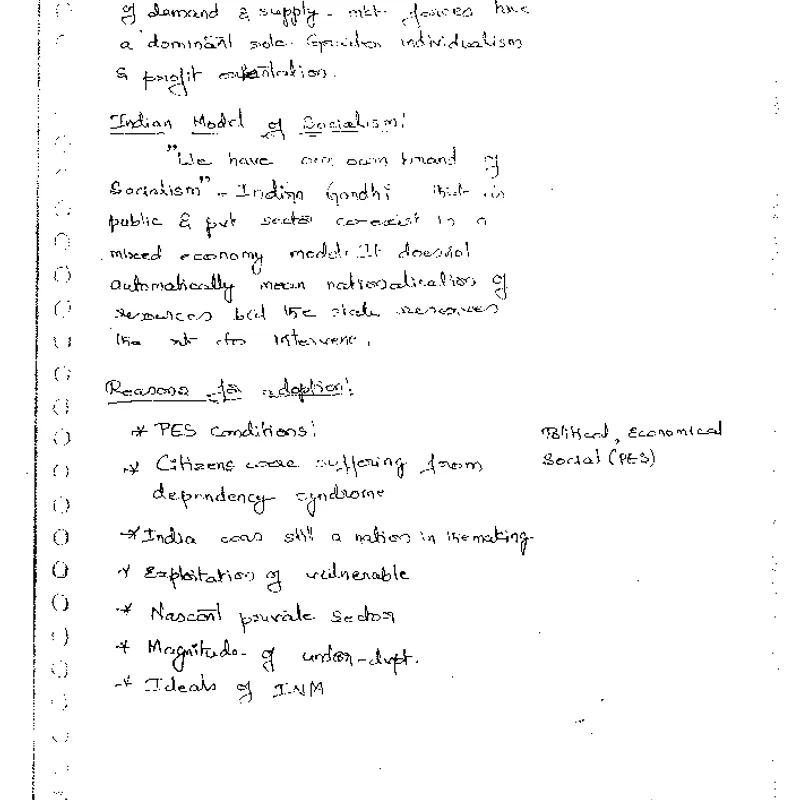 of demand & supply - mkt. forces have
a dominant role. Greater individualism
& profit orientation.
Indian Model of Socialism:
"We have our own brand of
Socialism" - Indira Gandhi in
public & pvt sector co-exist in a
mixed economy model. It doesnot
automatically mean nationalisation of
resources but the state reserves
the rt. to intervene.
Reasons for adoption:
* PES conditions:
Political, Economical
Social (PES)
* Citizens were suffering from
dependency syndrome
* India was still a nation in the making.
* Exploitation of vulnerable
* Nascent private sector
* Magnitude of under-dvpt.
* Ideals of INM